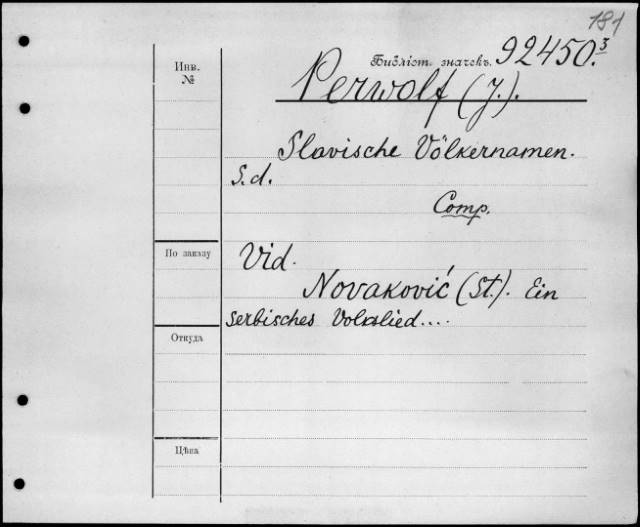 181
Библіот. значекъ. 92450.³
Инв.
№
Perwolf (J.).
Slavische Völkernamen.
S.d.
Comp.
По заказу
Vid.
Novaković (St.). Ein
serbisches Volkslied....
Откуда
Цѣна